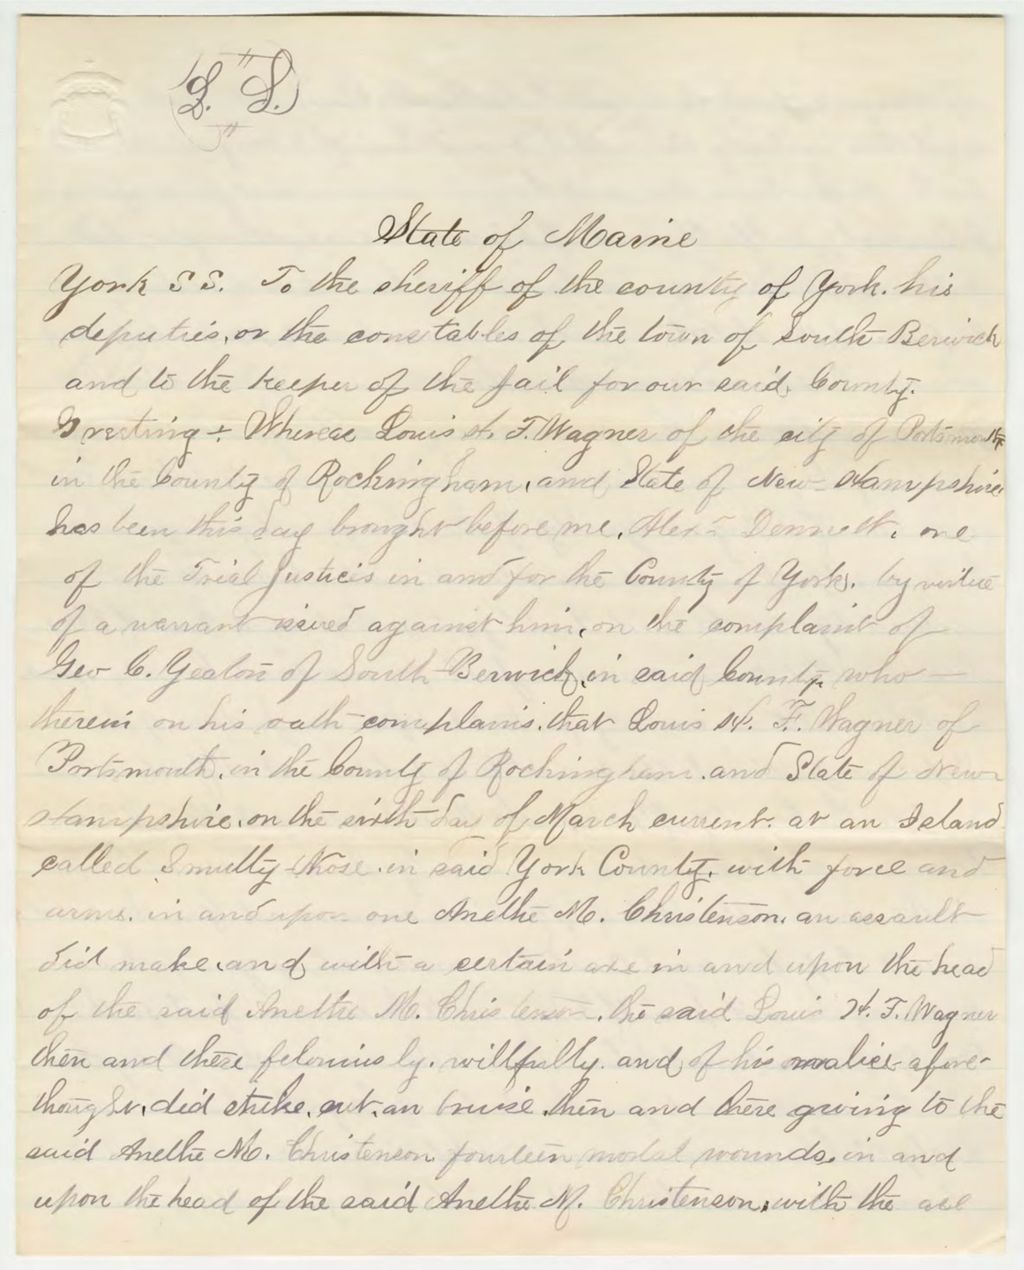 L. S.
State of Maine
York S S. To the sheriff of the county of York. his
deputies, or the constables of the town of South Berwick
and to the keeper of the jail for our said, County.
Greeting ÷ Whereas Louis H. F. Wagner of the city of Portsmouth
in the County of Rockingham, and State of New-Hampshire
has been this day brought before me, Alexr Dennett, one
of the Trial Justices in and for the County of York, by virtue
of a warrant issued against him, on the complaint of
Geo C. Yeaton of South Berwick, in said County, who —
therein on his oath complains, that Louis H. F. Wagner of
Portsmouth, in the County of Rockingham, and State of New
Hampshire, on the sixth day of March current. at an Island
called Smutty Nose. in said York County, with force and
arms, in and upon one Anethe M. Christenson, an assault
did make, and with a certain axe in and upon the head
of the said Anethe M. Christenson, the said Louis H. F. Wagner
then and there feloniously, willfully. and of his malice afore-
thought, did strike, cut, an bruise, then and there giving to the
said Anethe M. Christenson fourteen mortal wounds, in and
upon the head of the said Anethe M. Christenson, with the axe